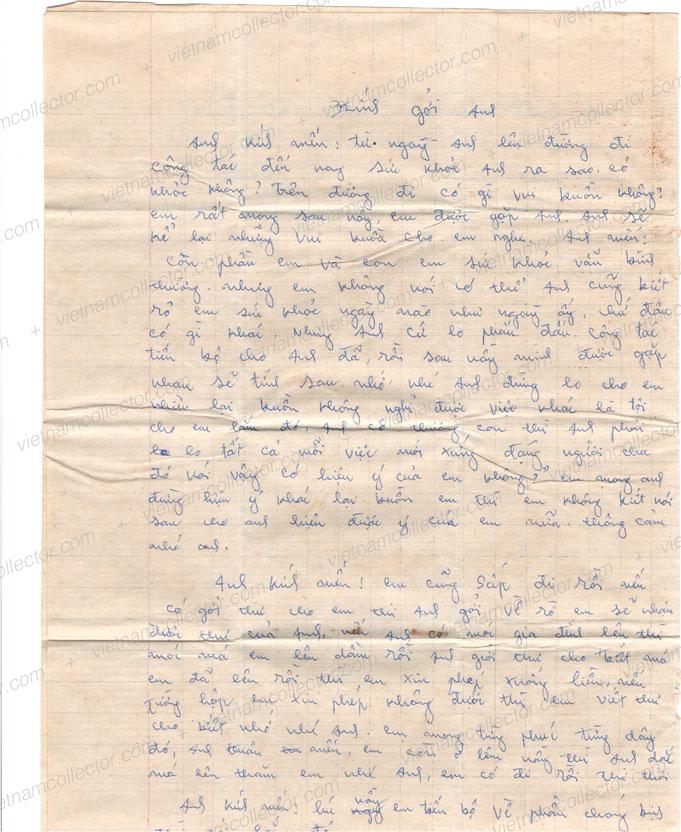 Kính gởi Anh
Anh kính mến! từ ngày Anh lên đường đi
công tác đến nay sức khỏe Anh ra sao, có
khỏe không? trên đường đi có gì vui buồn không?
em rất mong sau này, em được gặp Anh. Anh sẽ
kể lại những vui buồn cho em nghe. Anh mến!
Còn phần em và con em sức khỏe vẫn bình
thường. nhưng em không nói có thể Anh cũng biết
rõ em sức khỏe ngày nào như ngày ấy, chứ đâu
có gì khác. nhưng Anh cứ lo phấn đấu. công tác
tiến bộ cho Anh đã, rồi sau này mình được gặp
nhau sẽ tính sau, nhớ nhé Anh đừng lo cho em
nhiều lại buồn không nghỉ được việc khác là tội
cho em lắm đó, Anh có thương con thì Anh phải
lo tất cả mỗi việc mới xứng đáng người cha
đó nói vậy có hiểu ý của em không? em mong anh
đừng hiểu ý khác lại buồn em thì em không biết nói
sao cho anh hiểu được ý của em nữa. thông cảm
nhé anh.
Anh kính mến! em cũng sắp đi rồi nếu
có gởi thư cho em thì Anh gởi về rồ em sẽ nhận
được thư của Anh, nếu Anh có mời gia đình lên thì
mời má em lên dầm rồi Anh gởi thư cho biết má
em đã lên rồi thì em xin phép xuống liền, nếu
trường hợp em xin phép không được thì em viết thư
cho biết nhớ nhé Anh. em mong từng phút từng dây
đó, Anh mến, em còn ở lên nầy thì Anh dắt
má lên thăm em nhé Anh, em có đi rồi thì thôi
Anh kính mến! lúc này em tiến bộ về phần